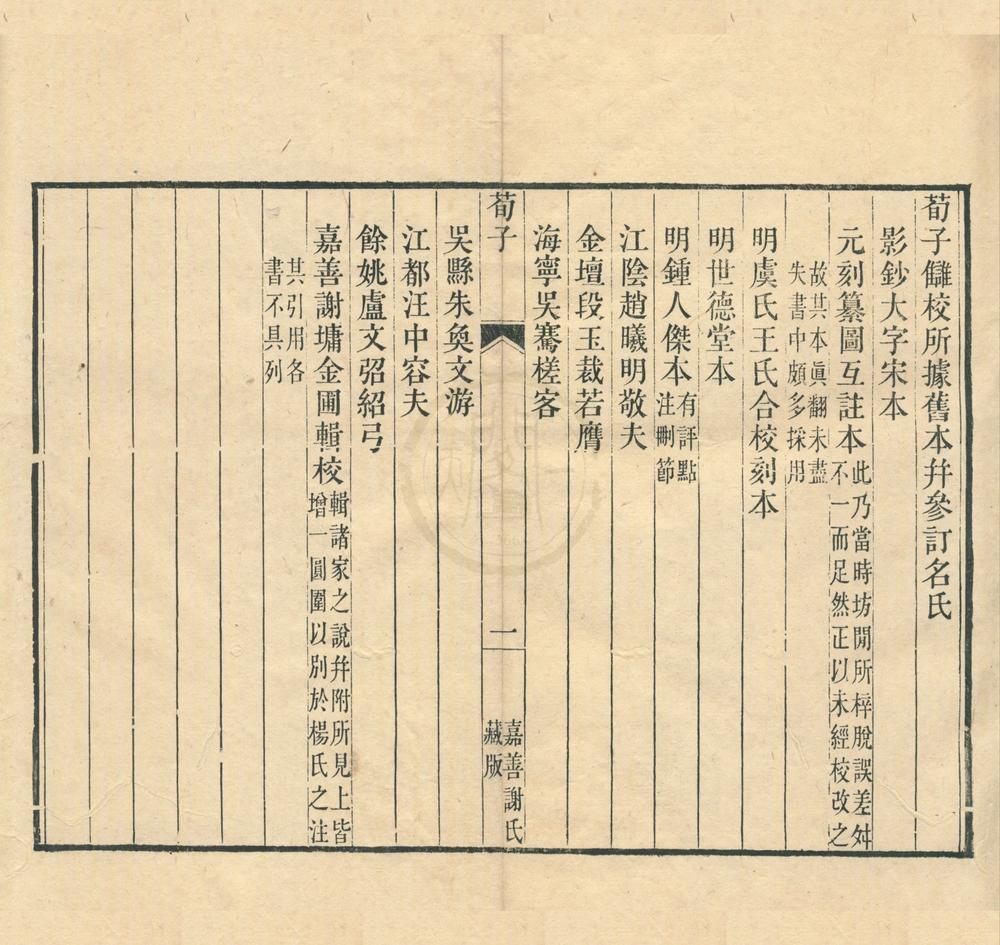 荀子讎校所據舊本幷參訂名氏
影鈔大字宋本
元刻纂圖互註本此乃當時坊閒所梓脫誤差舛不一而足然正以未經校改之
故其本眞翻未盡失書中頗多採用
明虞氏王氏合校刻本
明世德堂本
明鍾人傑本有評點注刪節
江陰趙曦明敬夫
金壇段玉裁若膺
海寧吳騫槎客
荀子
一
嘉善謝氏藏版
吳縣朱奐文游
江都汪中容夫
餘姚盧文弨紹弓
嘉善謝墉金圃輯校輯諸家之說幷附所見上皆增一圓圍以別於楊氏之注
其引用各書不具列